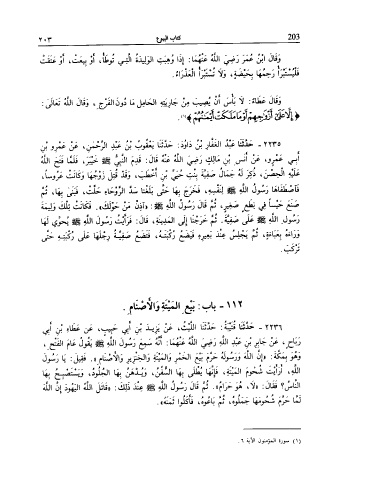 203 كتاب البيوع ٢٠٣
وَقَالَ ابْنُ عُمَرَ رَضِيَ اللَّهُ عَنْهُمَا: إِذَا وُهِبَتِ الْوَلِيدَةُ الَّتِي تُوطَأُ، أَوْ بِيعَتْ، أَوْ عَتَقَتْ
فَلْيُسْتَبْرَأْ رَحِمُهَا بِحَيْضَةٍ، وَلَا تُسْتَبْرَأُ الْعَذْرَاءُ.
وَقَالَ عَطَاءٌ: لَا بَأْسَ أَنْ يُصِيبَ مِنْ جَارِيَتِهِ الْحَامِلِ مَا دُونَ الْفَرْجِ، وَقَالَ اللَّهُ تَعَالَى:
﴿إِلَّا عَلَىٰ أَزْوَاجِهِمْ أَوْ مَا مَلَكَتْ أَيْمَانُهُمْ﴾(١).
٢٢٣٥ - حَدَّثَنَا عَبْدُ الْغَفَّارِ بْنُ دَاوُدَ: حَدَّثَنَا يَعْقُوبُ بْنُ عَبْدِ الرَّحْمٰنِ، عَنْ عَمْرِو بْنِ
أَبِي عَمْرٍو، عَنْ أَنَسِ بْنِ مَالِكٍ رَضِيَ اللَّهُ عَنْهُ قَالَ: قَدِمَ النَّبِيُّ ﷺ خَيْبَرَ، فَلَمَّا فَتَحَ اللَّهُ
عَلَيْهِ الْحِصْنَ، ذُكِرَ لَهُ جَمَالُ صَفِيَّةَ بِنْتِ حُيَيِّ بْنِ أَخْطَبَ، وَقَدْ قُتِلَ زَوْجُهَا وَكَانَتْ عَرُوسًا،
فَاصْطَفَاهَا رَسُولُ اللَّهِ ﷺ لِنَفْسِهِ، فَخَرَجَ بِهَا حَتَّى بَلَغْنَا سَدَّ الرَّوْحَاءِ حَلَّتْ، فَبَنَى بِهَا، ثُمَّ
صَنَعَ حَيْسًا فِي نِطَعٍ صَغِيرٍ، ثُمَّ قَالَ رَسُولُ اللَّهِ ﷺ: «آذِنْ مَنْ حَوْلَكَ». فَكَانَتْ تِلْكَ وَلِيمَةَ
رَسُولِ اللَّهِ ﷺ عَلَى صَفِيَّةَ. ثُمَّ خَرَجْنَا إِلَى الْمَدِينَةِ، قَالَ: فَرَأَيْتُ رَسُولَ اللَّهِ ﷺ يُحَوِّي لَهَا
وَرَاءَهُ بِعَبَاءَةٍ، ثُمَّ يَجْلِسُ عِنْدَ بَعِيرِهِ فَيَضَعُ رُكْبَتَهُ، فَتَضَعُ صَفِيَّةُ رِجْلَهَا عَلَى رُكْبَتِهِ حَتَّى
تَرْكَبَ.
١١٢ - باب: بَيْعِ الْمَيْتَةِ وَالْأَصْنَامِ.
٢٢٣٦ - حَدَّثَنَا قُتَيْبَةُ: حَدَّثَنَا اللَّيْثُ، عَنْ يَزِيدَ بْنِ أَبِي حَبِيبٍ، عَنْ عَطَاءِ بْنِ أَبِي
رَبَاحٍ، عَنْ جَابِرِ بْنِ عَبْدِ اللَّهِ رَضِيَ اللَّهُ عَنْهُمَا: أَنَّهُ سَمِعَ رَسُولَ اللَّهِ ﷺ يَقُولُ عَامَ الْفَتْحِ،
وَهُوَ بِمَكَّةَ: «إِنَّ اللَّهَ وَرَسُولَهُ حَرَّمَ بَيْعَ الْخَمْرِ وَالْمَيْتَةِ وَالْخِنْزِيرِ وَالْأَصْنَامِ». فَقِيلَ: يَا رَسُولَ
اللَّهِ، أَرَأَيْتَ شُحُومَ الْمَيْتَةِ، فَإِنَّهَا يُطْلَى بِهَا السُّفُنُ، وَيُدْهَنُ بِهَا الْجُلُودُ، وَيَسْتَصْبِحُ بِهَا
النَّاسُ؟ فَقَالَ: «لَا، هُوَ حَرَامٌ». ثُمَّ قَالَ رَسُولُ اللَّهِ ﷺ عِنْدَ ذَلِكَ: «قَاتَلَ اللَّهُ الْيَهُودَ إِنَّ اللَّهَ
لَمَّا حَرَّمَ شُحُومَهَا جَمَلُوهُ، ثُمَّ بَاعُوهُ، فَأَكَلُوا ثَمَنَهُ».
(١) سورة المؤمنون الآية ٦.